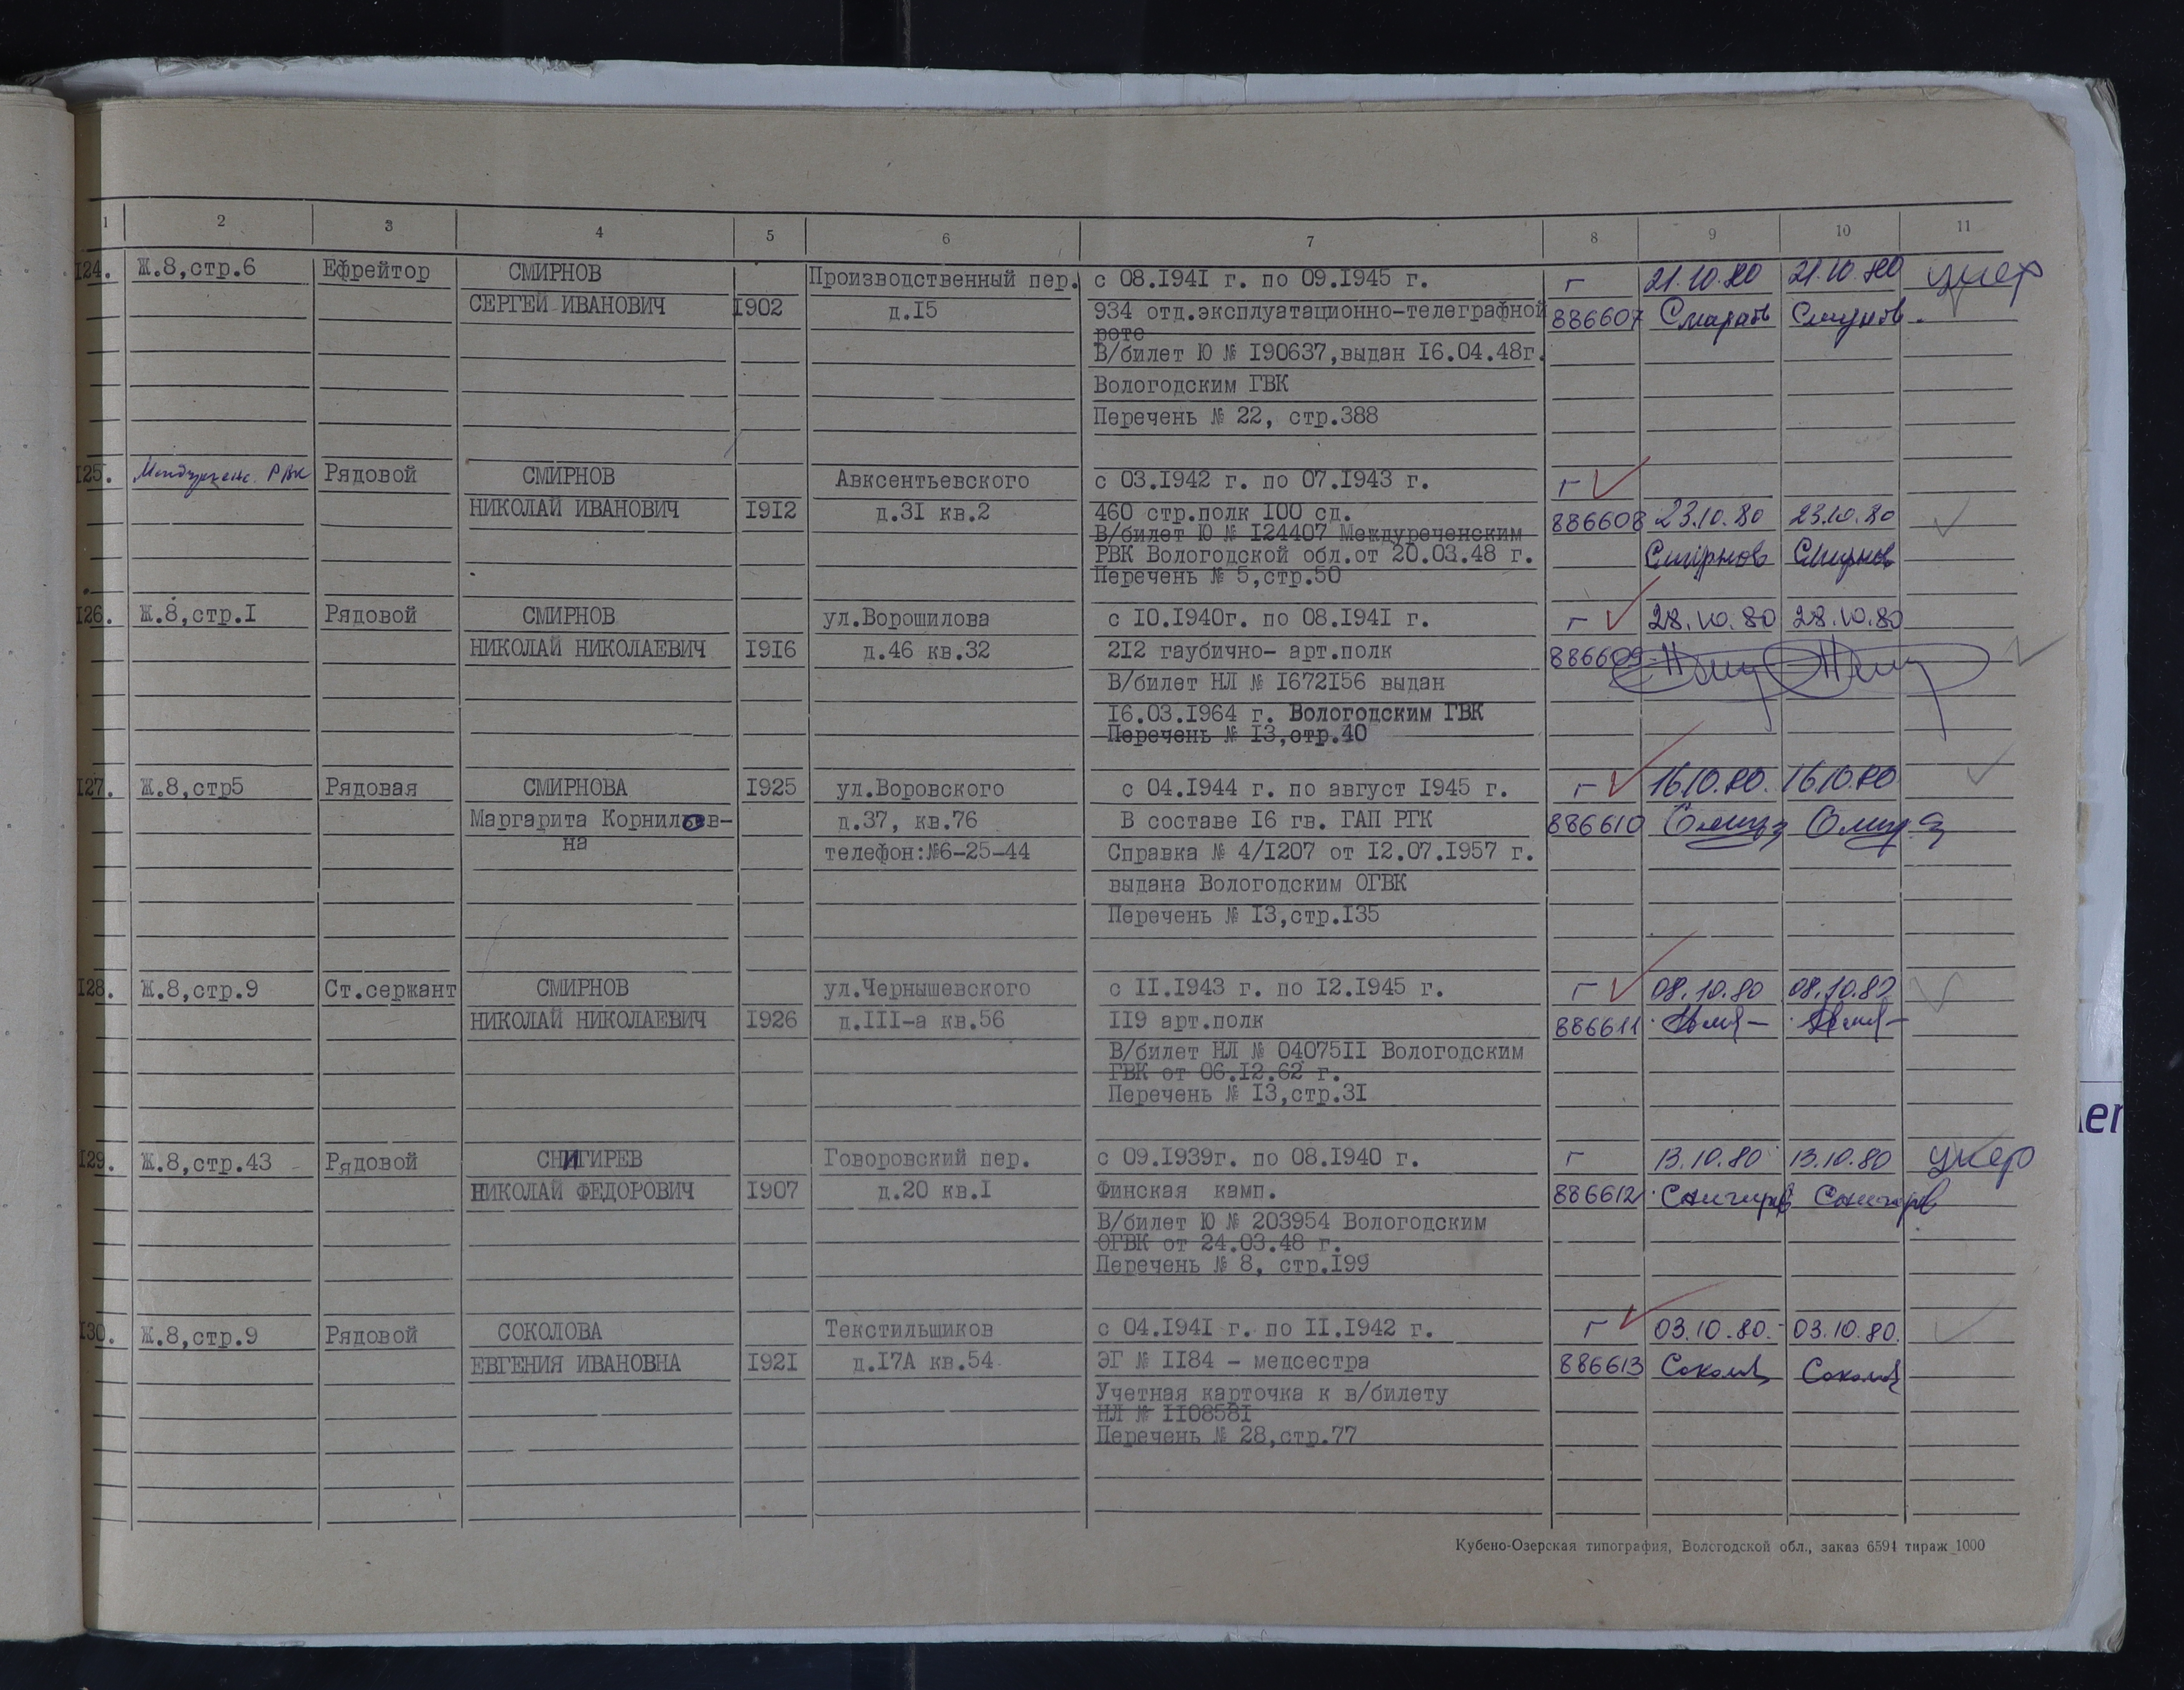 1 2 3 4 5 6 7 8 9 10 11
I24. Ж.8,стр.6 Ефрейтор СМИРНОВ Производственный пер. с 08.I94I г. по 09.I945 г. г 21.10.80 21.10.80 умер
СЕРГЕЙ ИВАНОВИЧ I902 д.I5 934 отд.эксплуатационно-телеграфной 886607 Смирнов Смирнов
роте
В/билет Ю № I90637,выдан I6.04.48г.
Вологодским ГВК
Перечень № 22, стр.388
I25. Междуречен. РВК Рядовой СМИРНОВ Авксентьевского с 03.I942 г. по 07.I943 г. г
НИКОЛАЙ ИВАНОВИЧ I9I2 д.3I кв.2 460 стр.полк I00 сд. 886608 23.10.80 23.10.80
В/билет Ю № I24407 Междуреченским
РВК Вологодской обл.от 20.03.48 г. Смирнов Смирнов
Перечень № 5,стр.50
I26. Ж.8,стр.I Рядовой СМИРНОВ ул.Ворошилова с I0.I940г. по 08.I94I г. г 28.10.80 28.10.80
НИКОЛАЙ НИКОЛАЕВИЧ I9I6 д.46 кв.32 2I2 гаубично- арт.полк 886609
В/билет НЛ № I672I56 выдан
I6.03.I964 г. Вологодским ГВК
Перечень № I3,стр.40
I27. Ж.8,стр5 Рядовая СМИРНОВА I925 ул.Воровского с 04.I944 г. по август I945 г. г 16.10.80. 16.10.80
Маргарита Корнильев- д.37, кв.76 В составе I6 гв. ГАП РГК 886610
на телефон:№6-25-44 Справка № 4/I207 от I2.07.I957 г.
выдана Вологодским ОГВК
Перечень № I3,стр.I35
I28. Ж.8,стр.9 Ст.сержант СМИРНОВ ул.Чернышевского с II.I943 г. по I2.I945 г. г 08.10.80 08.10.80
НИКОЛАЙ НИКОЛАЕВИЧ I926 д.III-а кв.56 II9 арт.полк 886611
В/билет НЛ № 04075II Вологодским
ГВК от 06.I2.62 г.
Перечень № I3,стр.3I
I29. Ж.8,стр.43 Рядовой СНИГИРЕВ Говоровский пер. с 09.I939г. по 08.I940 г. г 13.10.80 13.10.80 умер
НИКОЛАЙ ФЕДОРОВИЧ I907 д.20 кв.I Финская камп. 886612 Снигирев Снигирев
В/билет Ю № 203954 Вологодским
ОГВК от 24.03.48 г.
Перечень № 8, стр.I99
I30. Ж.8,стр.9 Рядовой СОКОЛОВА Текстильщиков с 04.I94I г. по II.I942 г. г 03.10.80. 03.10.80.
ЕВГЕНИЯ ИВАНОВНА I92I д.I7А кв.54 ЭГ № II84 - медсестра 886613
Учетная карточка к в/билету
НЛ № II0858I
Перечень № 28,стр.77
Кубено-Озерская типография, Вологодской обл., заказ 6594 тираж 1000